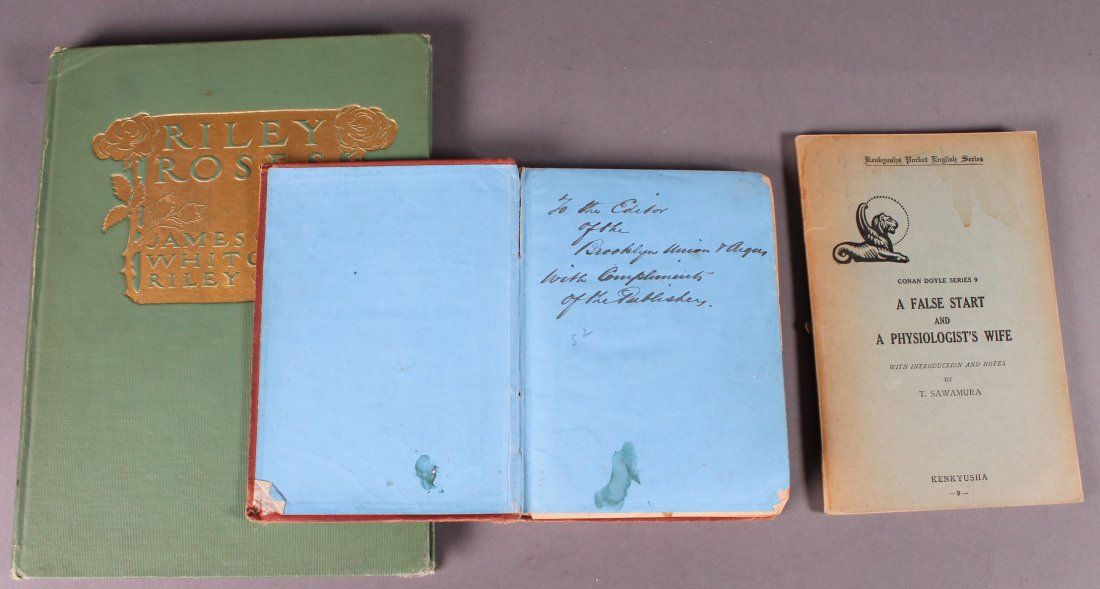 RILEY
ROSES
JAMES
WHITC
RILEY
To the Editor
of the
Brooklyn Union & Argus
With Compliments
of the Publishers.
52
Kenkyusha Pocket English Series
CONAN DOYLE SERIES 9
A FALSE START
AND
A PHYSIOLOGIST'S WIFE
WITH INTRODUCTION AND NOTES
BY
T. SAWAMURA
KENKYUSHA
—9—